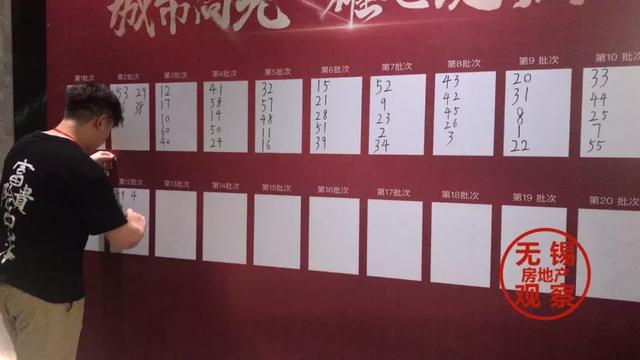 城市
第1批次 第2批次 第3批次 第4批次 第5批次 第6批次 第7批次 第8批次 第9 批次 第10 批次
53 29 12 41 32 15 52 43 20 33
38 17 58 57 21 9 42 31 44
10 14 48 28 23 45 8 25
60 50 11 51 2 26 1 7
40 24 16 39 34 3 22 55
第12批次 第13批次 第14批次 第15批次 第16批次 第17批次 第18批次 第19 批次 第20 批次
9 4
富貴
无锡
房地产
观察